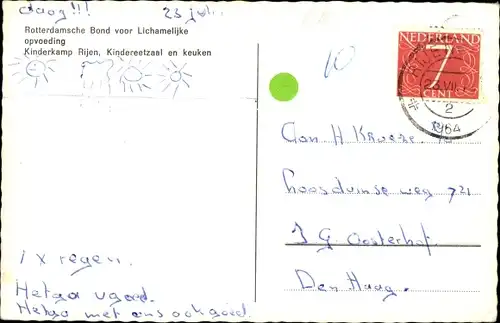 daag!!! 23 juli.
Rotterdamsche Bond voor Lichamelijke
opvoeding
Kinderkamp Rijen, Kindereetzaal en keuken
1 x regen.
Het ga u goed.
Het ga met ons ook goed.
10
NEDERLAND
7
CENT
23 VII
2
1964
Aan H
Loosduinse weg 721
J G Oosterhof
Den Haag.